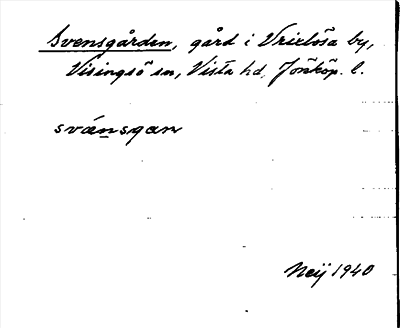 Svensgården, gård i Vrixlösa by,
Visingsö sn, Vista hd, Jönköp. l.
svánsgan
Neij 1940